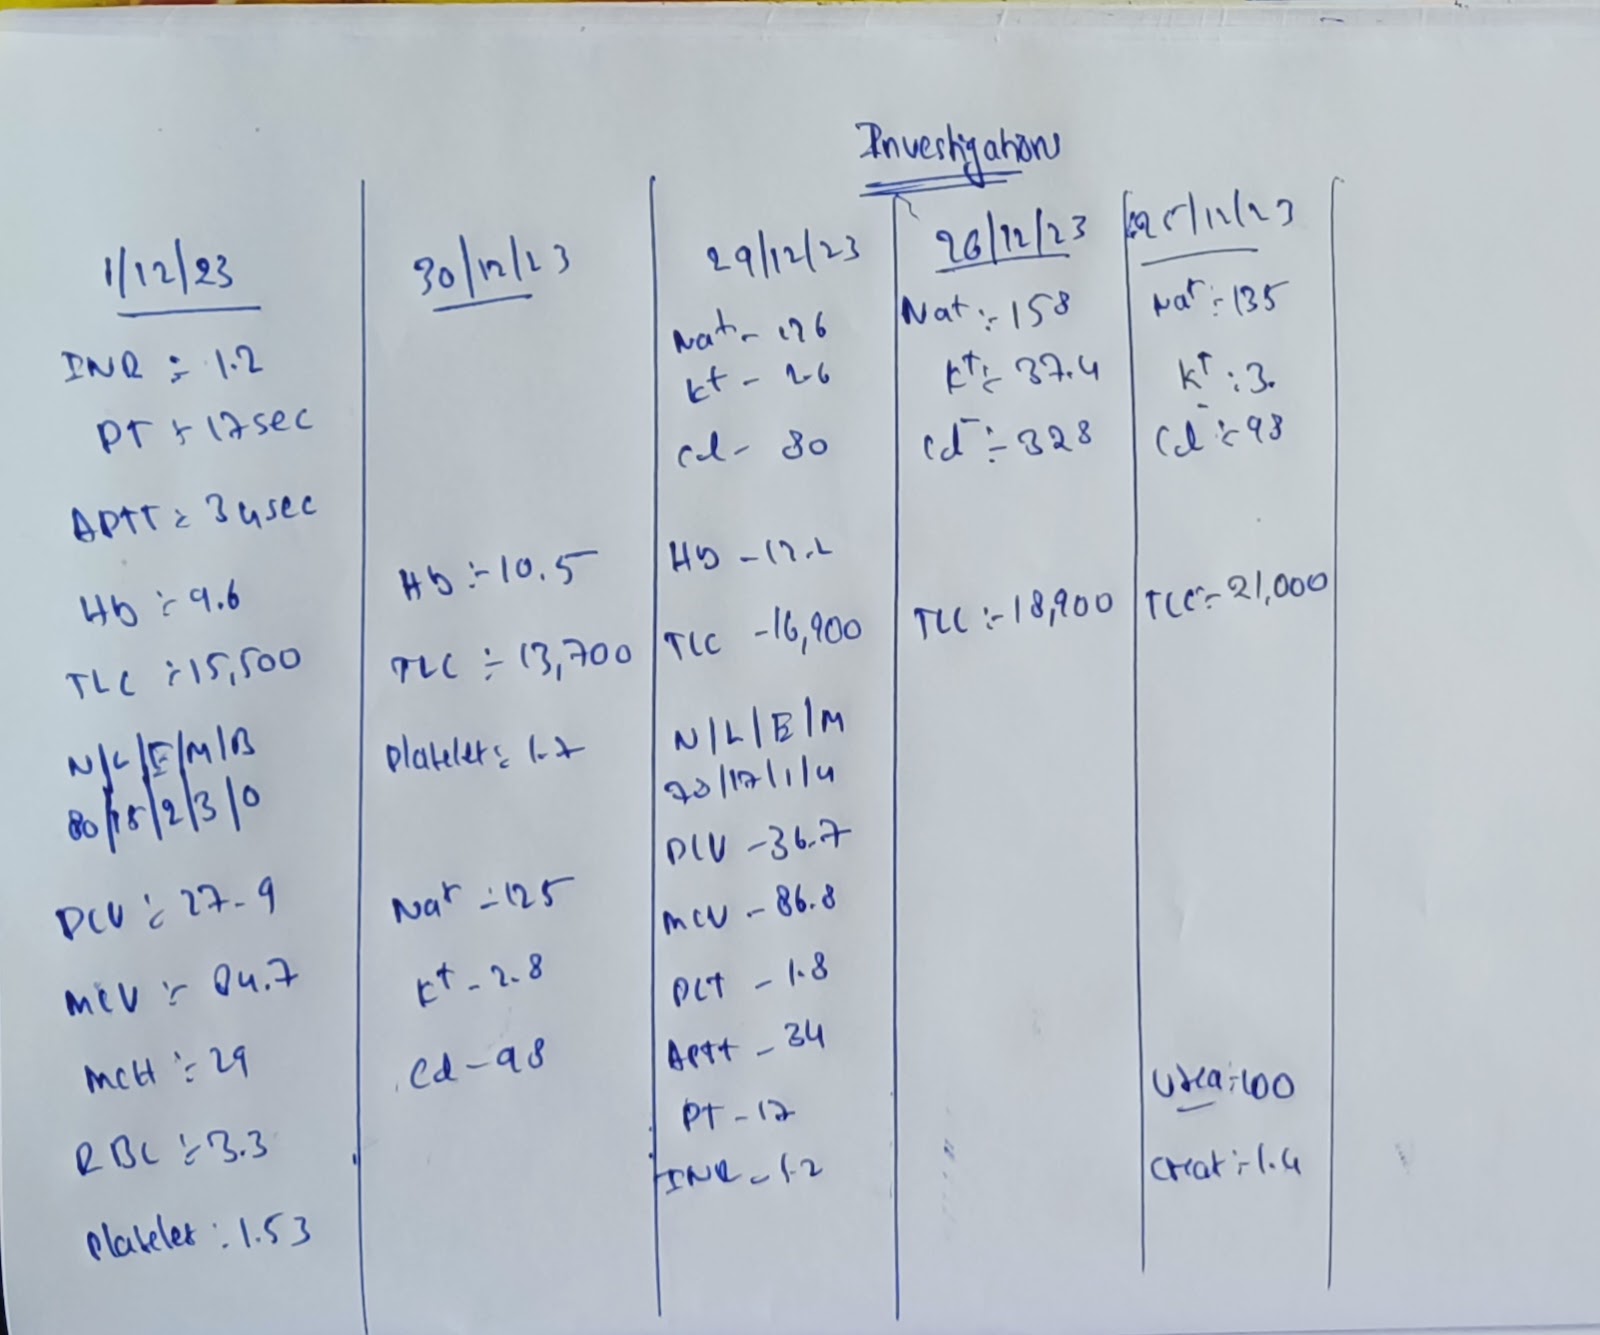 Investigations
1/12/23
INR :- 1.2
PT :- 17sec
APTT :- 34sec
Hb :- 9.6
TLC :- 15,500
N/L/E/M/B
80/15/2/3/0
PCV :- 27.9
MCV :- 84.7
MCH :- 29
RBC :- 3.3
Platelet : 1.53
30/12/23
Hb :- 10.5
TLC :- 13,700
Platelet : 1.7
Na+ :- 125
K+ - 2.8
Cl - 98
29/12/23
Na+ - 126
K+ - 2.6
Cl - 80
Hb - 12.2
TLC - 16,900
N/L/E/M
78/17/1/4
PCV - 36.7
MCV - 86.8
PLT - 1.8
APTT - 34
PT - 17
INR - 1.2
26/12/23
Na+ :- 158
K+ :- 37.4
Cl- :- 328
TLC :- 18,900
25/12/23
Na+ :- 135
K+ : 3.
Cl- :- 98
TLC :- 21,000
Urea :- 100
Creat :- 1.4